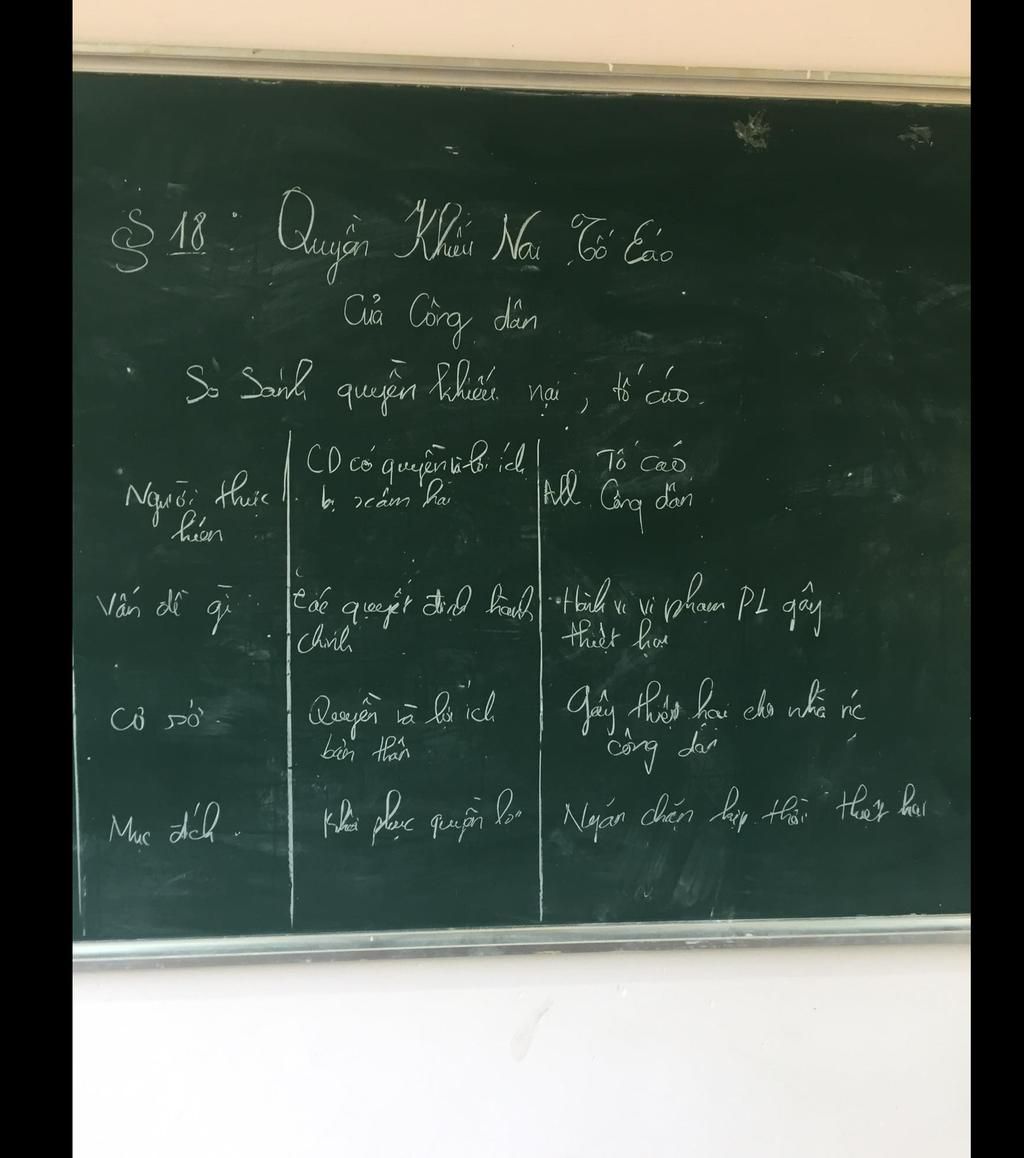 § 18: Quyền Khiếu Nại Tố Cáo
Của Công dân
So Sánh quyền khiếu nại, tố cáo.
CD có quyền và lợi ích
bị xâm hại
Tố cáo
All Công dân
Người thực
hiện
Vấn đề gì
Các quyết định hành
chính
Hành vi vi phạm PL gây
thiệt hại
Cơ sở
Quyền và lợi ích
bản thân
Gây thiệt hại cho nhà nc
công dân
Mục đích
Khôi phục quyền lợi
Ngăn chặn kịp thời thiệt hại